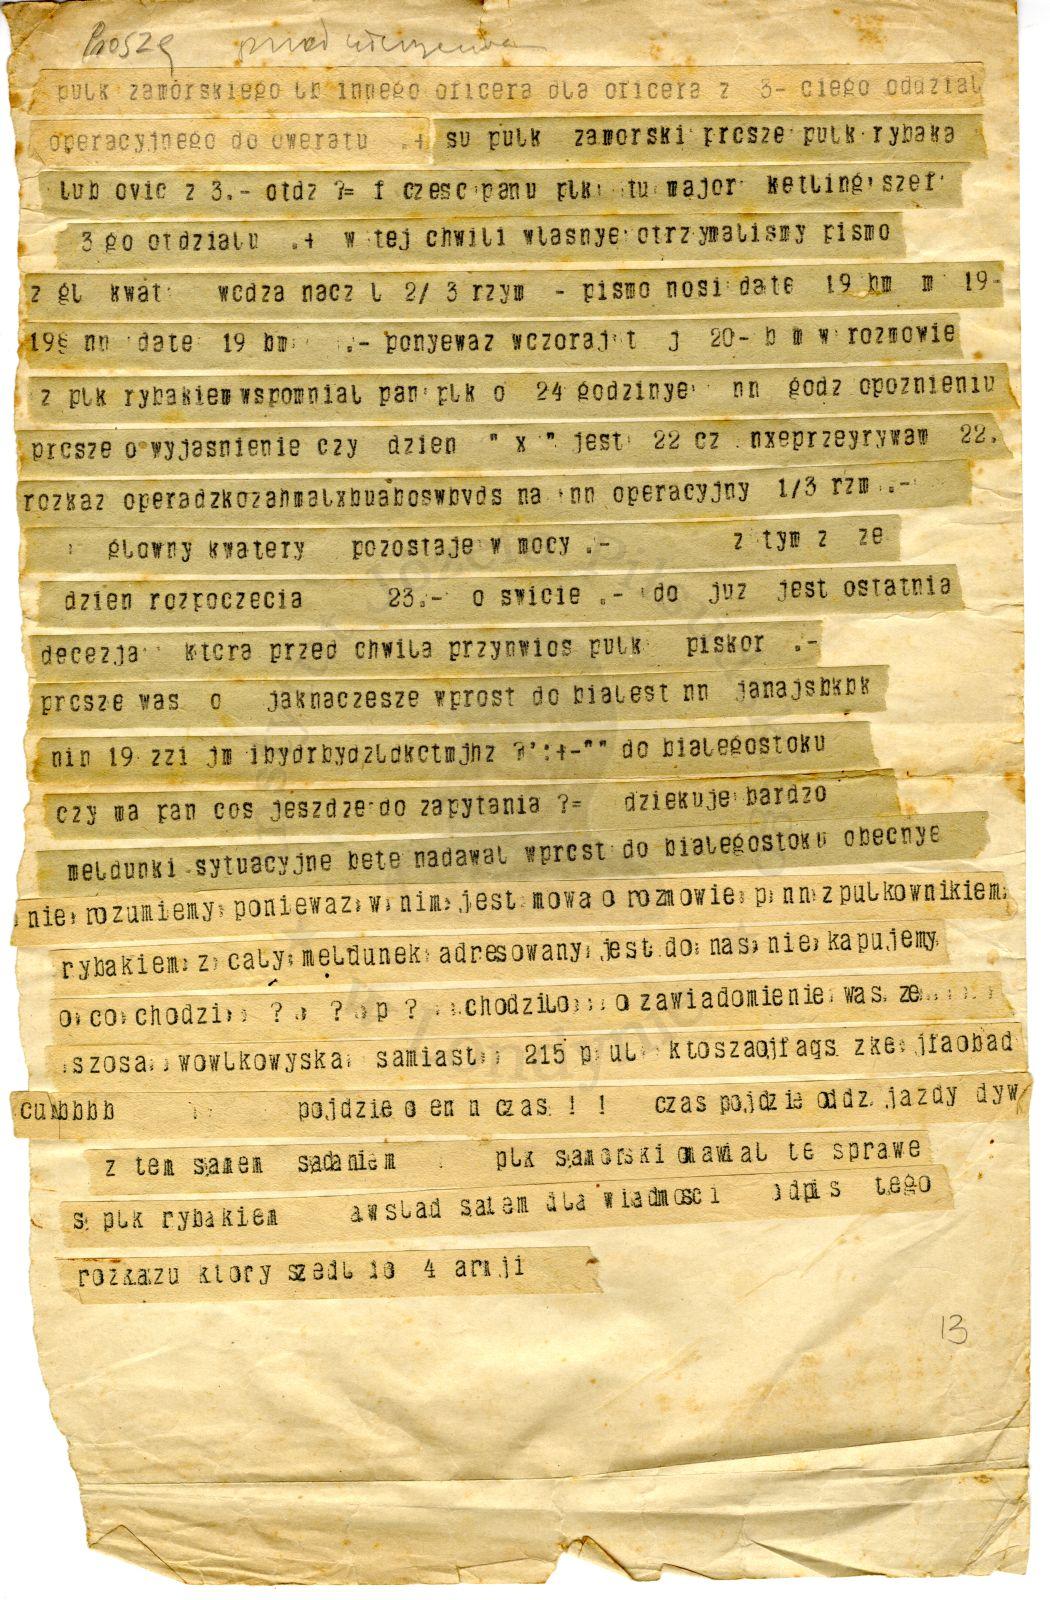 Proszę
pulk zamorskiego lb innego oficera dla oficera z 3- ciego oddzial
operacyjnego do oweratu .+ su pulk zamorski prcsze pulk rybaka
lub ovic z 3.- otdz ?= f czesc panu plk tu major ketling szef
3 go otdzialu .+ w tej chwili wlasnye otrzymalismy pismo
z gl kwat wcdza nacz l 2/ 3 rzym - pismo nosi date 19 bm m 19-
198 nn date 19 bm .- ponyewaz wczoraj t j 20- b m w rozmowie
z plk rybakiem wspomnial pan plk o 24 godzinye nn godz opoznieniu
prcsze o wyjasnienie czy dzien " x " jest 22 cz nxeprzeyrywam 22.
rozkaz operadzkozahmalxbuaboswbvds na nn operacyjny 1/3 rzm .-
glowny kwatery pozostaje w mocy .- z tym z ze
dzien rozpoczecia 23.- o swicie .- do juz jest ostatnia
decezja ktcra przed chwila przynwios pulk piskor .-
prcsze was o jaknaczesze wprost do bialest nn janajsbkbk
nin 19 zzi jm ibydrbydzldkctmjhz ?':+-"" do bialegostoku
czy ma pan cos jeszdze do zapytania ?= dziekuje bardzo
meldunki sytuacyjne bete nadawal wprcst do bialegostoku obecnye
nie rozumiemy poniewaz w nim jest mowa o rozmowie p nn z pulkownikiem
rybakiem z caly meldunek adresowany jest do nas nie kapujemy
o co chodzi ? ? p ? chodzilo o zawiadomienie was ze
szosa wowlkowyska samiast 215 p ul ktoszaqjfaqs zke jfaobad
cunbbbb pojdzie o en n czas ! ! czas pojdzie oddz jazdy dyw
z tem samem sadaniem plk samorski omawial te sprawe
s plk rybakiem awslad salem dla wiadmosci odpis tego
rozkazu ktory szedl do 4 armji
13